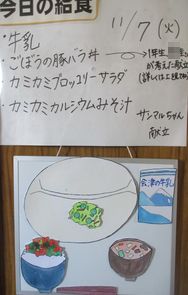 今日の給食
11/7(火)
・牛乳
・ごぼうの豚バラ丼
1年生
が考えた献立
(詳しくは上
・カミカミブロッコリーサラダ
・カミカミカルシウムみそ汁
サンマルちゃん
献立
会津の牛乳